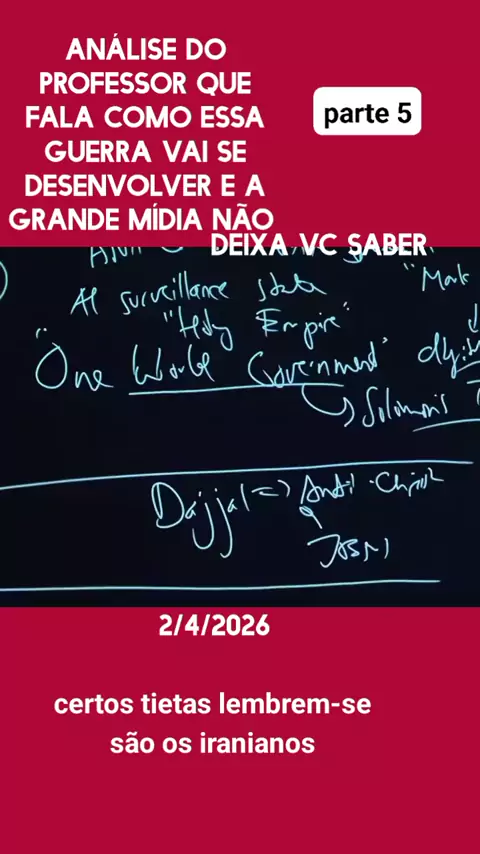 ANÁLISE DO
PROFESSOR QUE
FALA COMO ESSA
GUERRA VAI SE
DESENVOLVER E A
GRANDE MÍDIA NÃO
DEIXA VC SABER
parte 5
AI surveillance state
"Holy Empire"
"One World Government"
"Mark
Solomon's
Dajjal => Anti-Christ
2/4/2026
certos tietas lembrem-se
são os iranianos